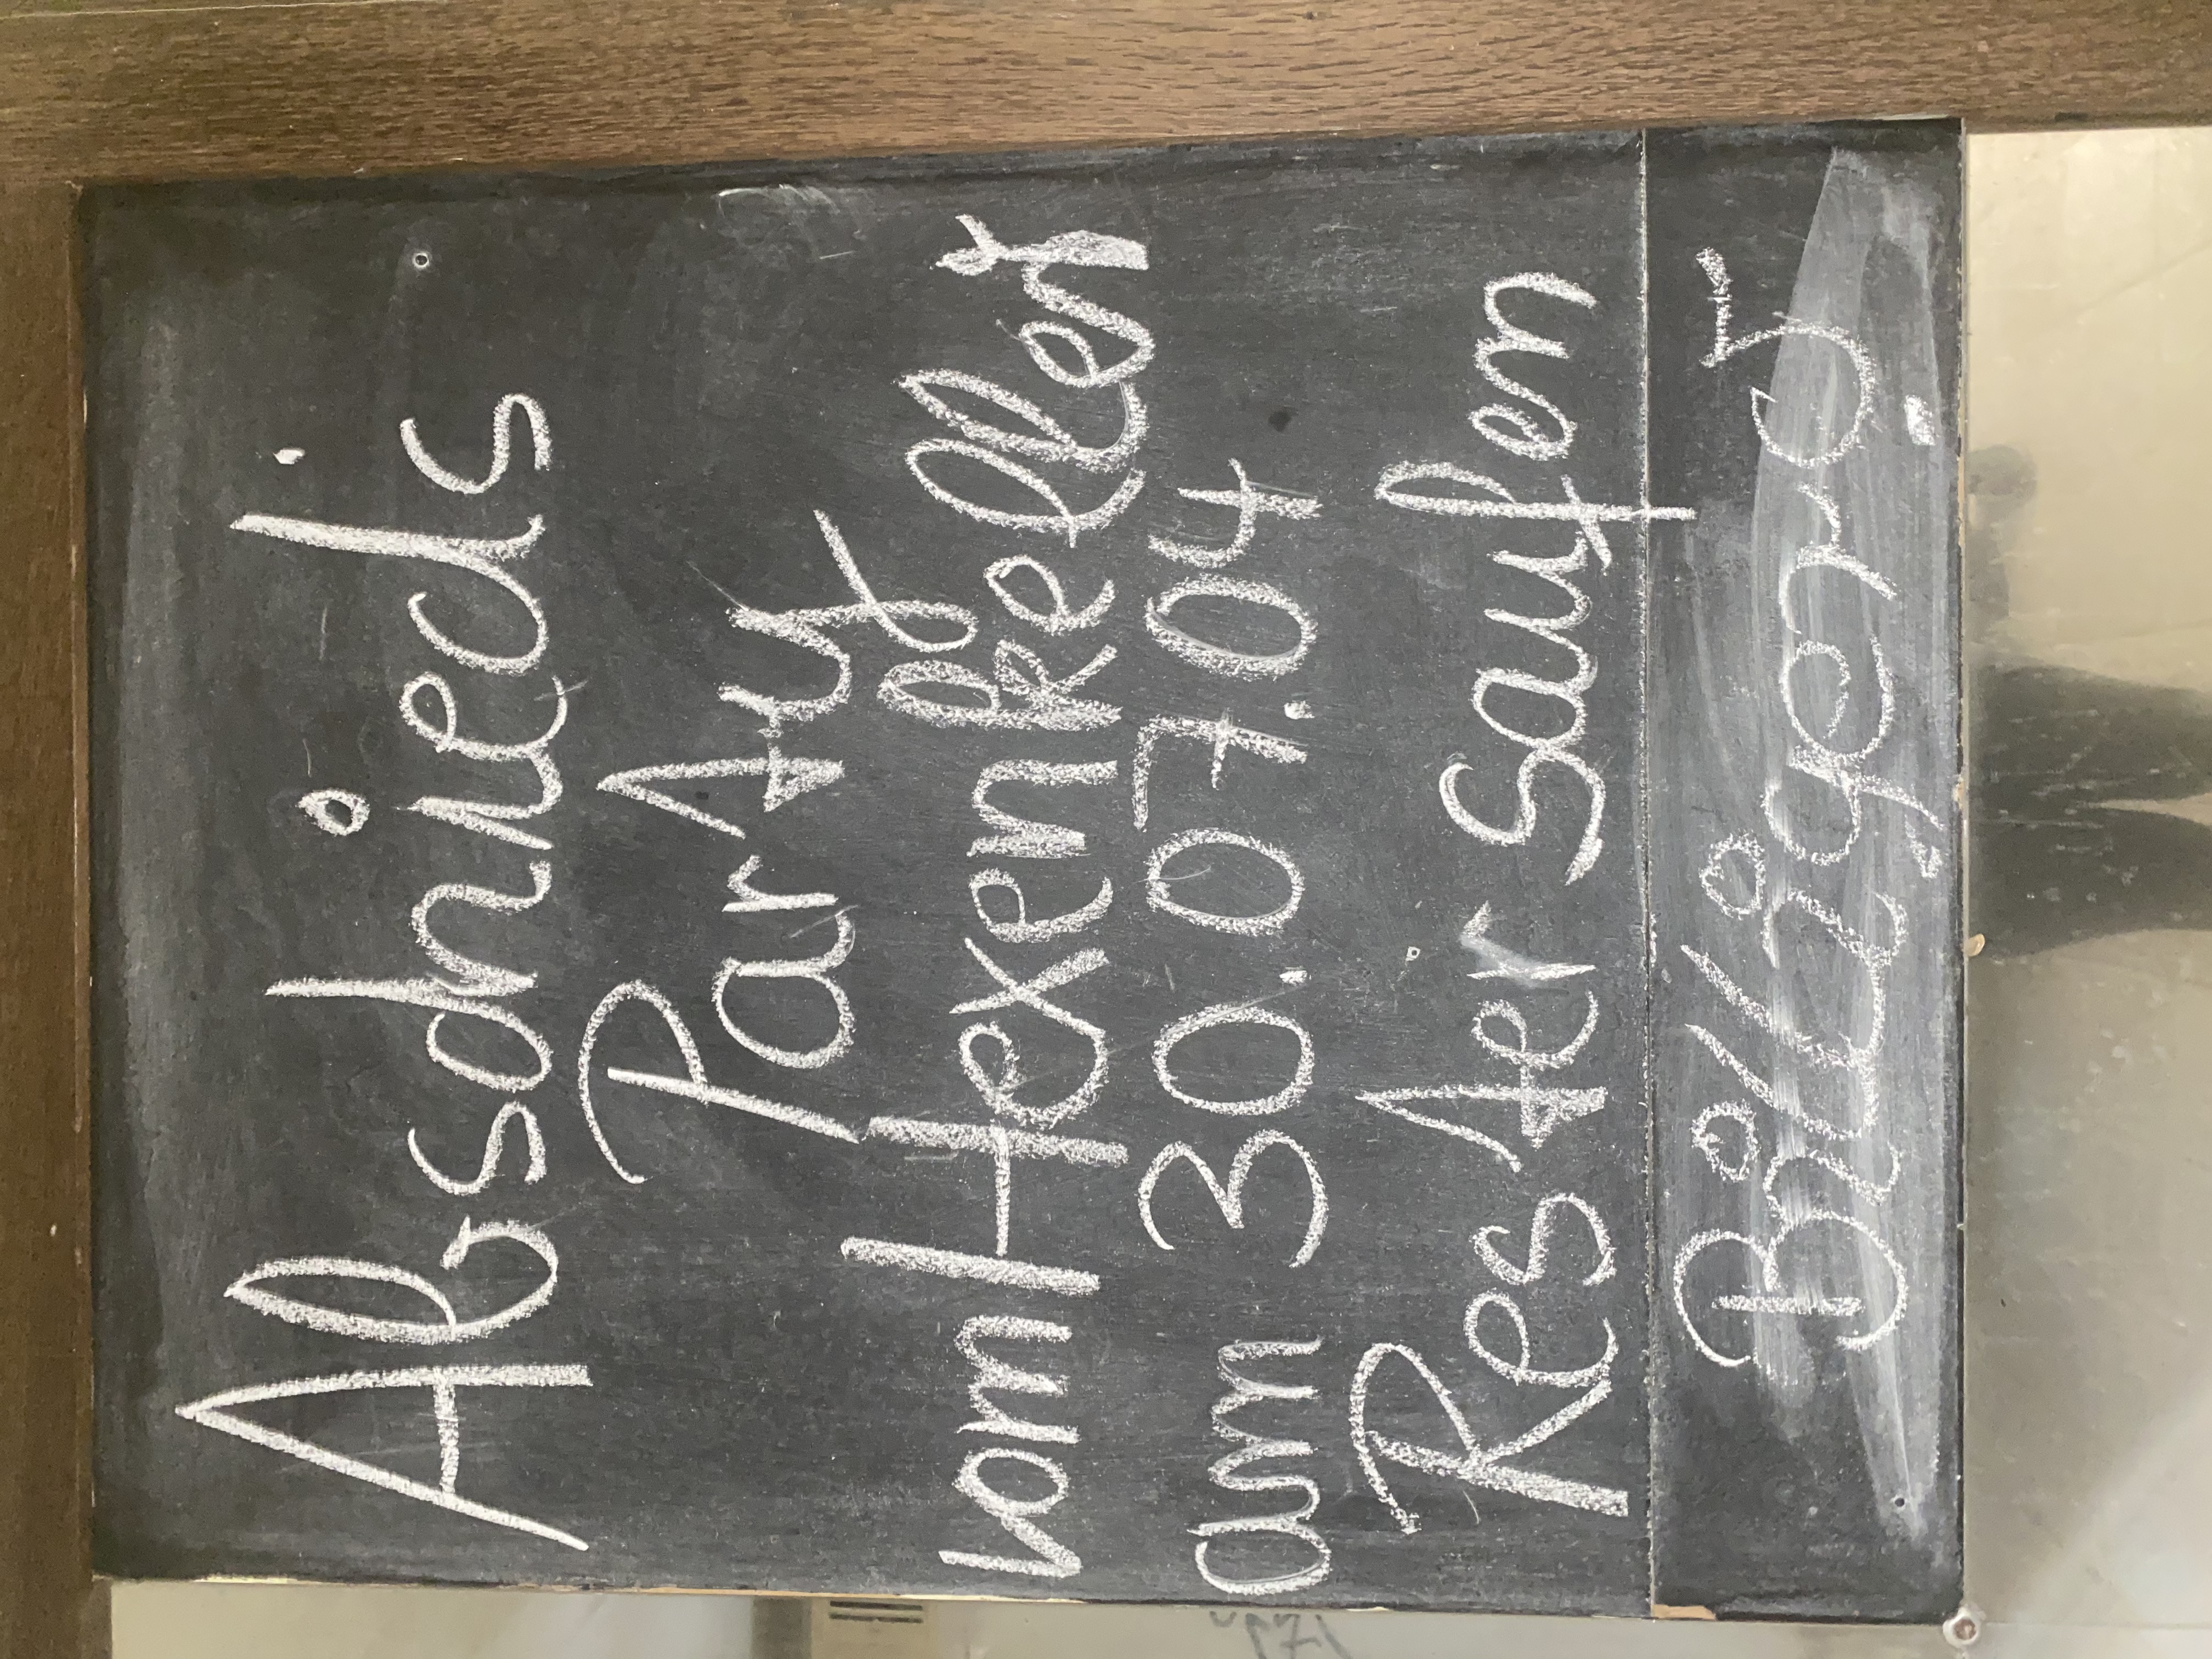 Abschieds
Party
vom Hexenkeller
am 30.07.04
Rester saufen
Billiger5